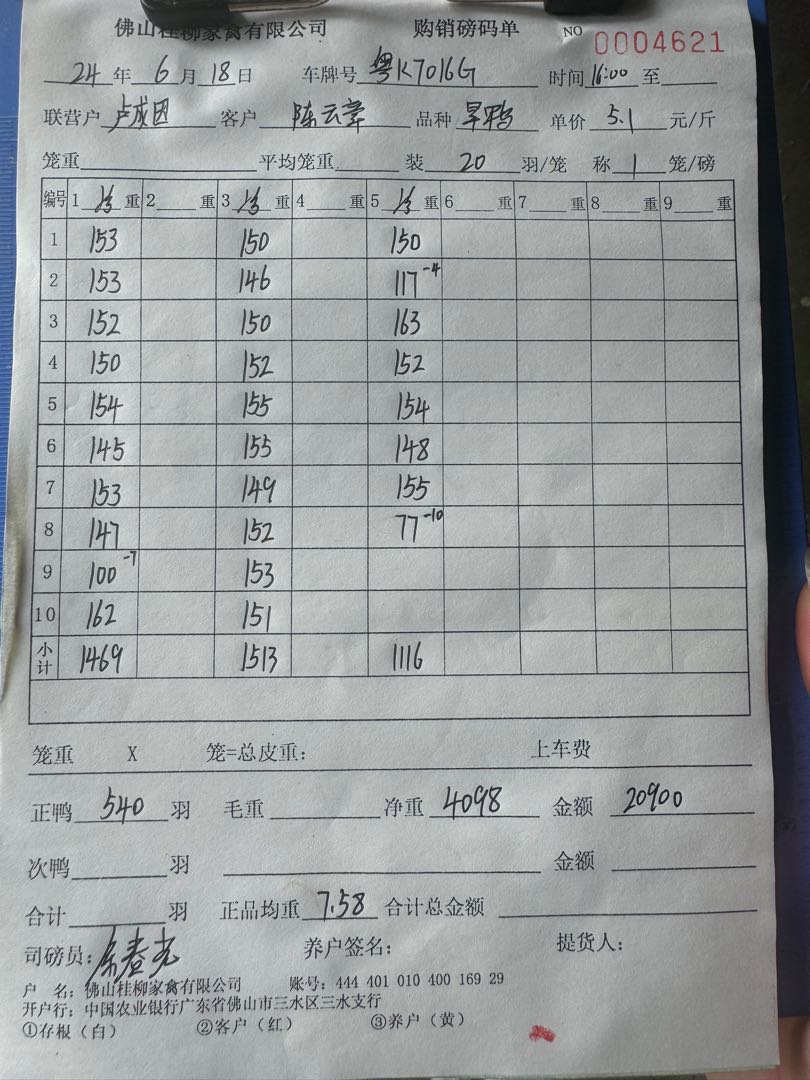 佛山桂柳家禽有限公司 购销磅码单 NO 0004621
24 年 6 月 18 日 车牌号 粤K7016G 时间 16:00 至
联营户 卢成团 客户 陈云 品种 旱鸭 单价 5.1 元/斤
笼重 平均笼重 装 20 羽/笼 称 1 笼/磅
编号 1 净 重 2 重 3 净 重 4 重 5 净 重 6 重 7 重 8 重 9 重
1 153 150 150
2 153 146 117 -4
3 152 150 163
4 150 152 152
5 154 155 154
6 145 155 148
7 153 149 155
8 147 152 77 -10
9 100 -7 153
10 162 151
小计 1469 1513 1116
笼重 X 笼=总皮重: 上车费
正鸭 540 羽 毛重 净重 4098 金额 20900
次鸭 羽 金额
合计 羽 正品均重 7.58 合计总金额
司磅员: 养户签名: 提货人:
户 名: 佛山桂柳家禽有限公司 账号: 444 401 010 400 169 29
开户行: 中国农业银行广东省佛山市三水区三水支行
①存根(白) ②客户(红) ③养户(黄)